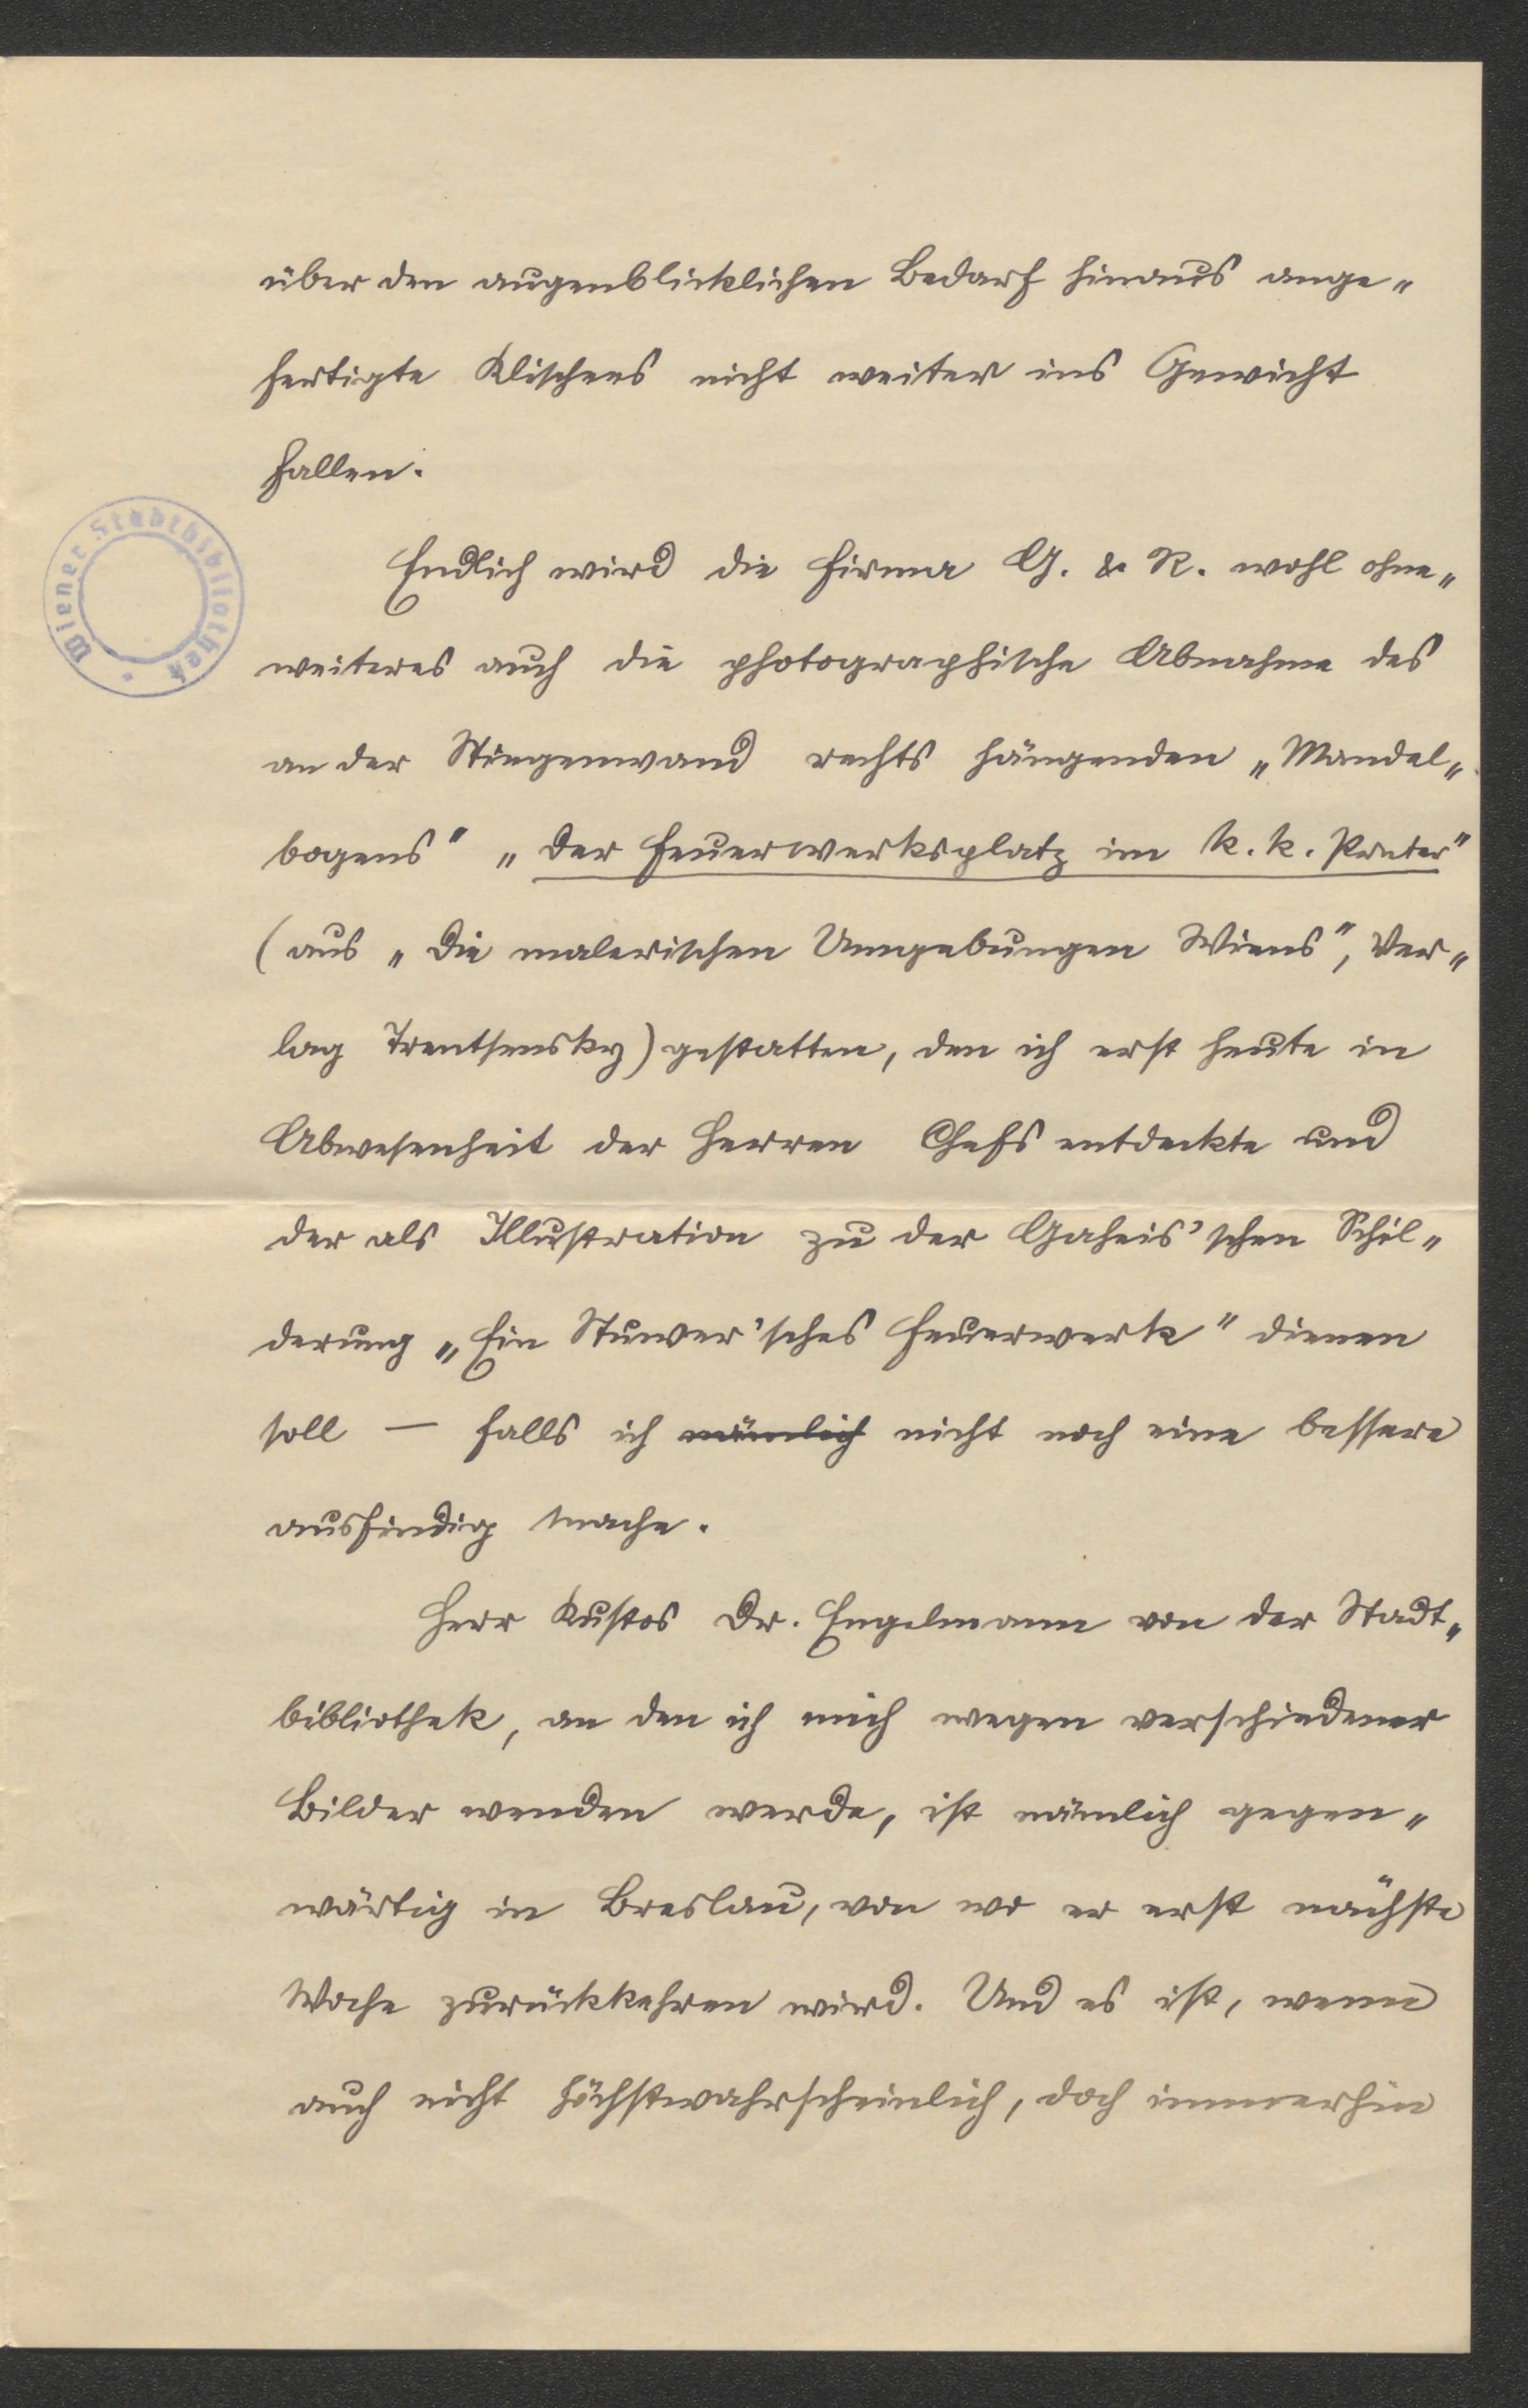 über den augenblicklichen Bedarf hinaus ange„
fertigte Klischees nicht weiter ins Gewicht
fallen.
Wiener Stadtbibliothek
Endlich wird die Firma G. & R. wohl ohne„
weiteres auch die photographische Abnahme des
an der Stiegenwand rechts hängenden „Mandel„
bogens" „Der Feuerwerksplatz im k. k. Prater"
(aus „Die malerischen Umgebungen Wiens", Ver„
lag Trentsensky) gestatten, den ich erst heute in
Abwesenheit der Herren Chefs entdeckte und
der als Illustration zu der Gaheis'schen Schil„
derung „Ein Stuwer'sches Feuerwerk" dienen
soll — falls ich nämlich nicht noch eine bessere
ausfindig mache.
Herr Kustos Dr. Engelmann von der Stadt„
bibliothek, an den ich mich wegen verschiedener
Bilder wenden werde, ist nämlich gegen„
wärtig in Breslau, von wo er erst nächste
Woche zurückkehren wird. Und es ist, wenn
auch nicht höchstwahrscheinlich, doch immerhin